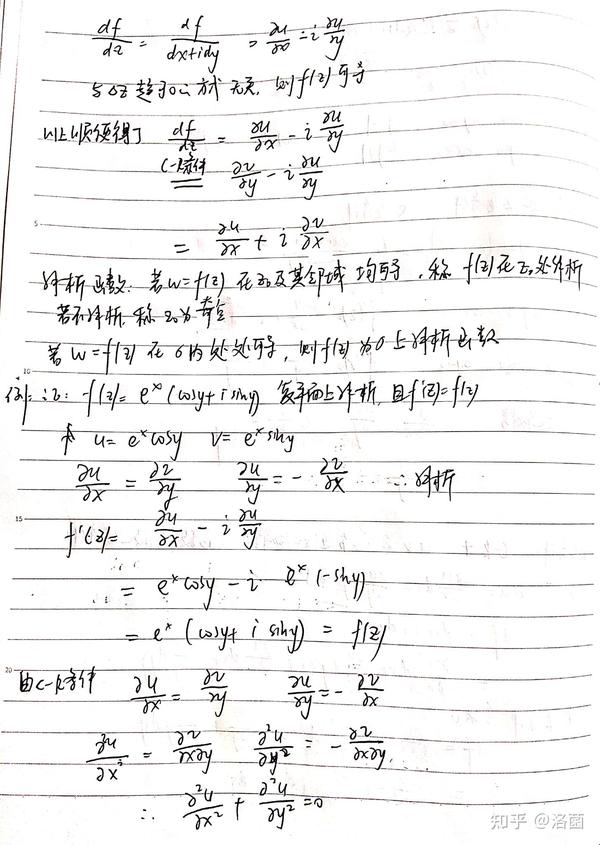 df/dz = df/(dx+idy) = ∂u/∂x - i ∂u/∂y
与Δz趋于0的方式无关, 则f(z)可导
以上顺便得了 df/dz = ∂u/∂x - i ∂u/∂y
C-R条件 ∂v/∂y - i ∂u/∂y
5
= ∂u/∂x + i ∂v/∂x
解析函数: 若w=f(z) 在z₀及其邻域均可导, 称 f(z)在z₀处解析
若不解析, 称z₀为奇点
10
若 w=f(z) 在σ内处处可导, 则f(z)为σ上解析函数
例: 证: f(z)= eˣ(cosy+i siny) 复平面上解析, 且f'(z)=f(z)
u= eˣcosy v= eˣsiny
∂u/∂x = ∂v/∂y ∂u/∂y = - ∂v/∂x ∴解析
15
f'(z)= ∂u/∂x - i ∂u/∂y
= eˣcosy - i eˣ(-siny)
= eˣ(cosy+ i siny) = f(z)
20
由C-R条件 ∂u/∂x = ∂v/∂y ∂u/∂y = - ∂v/∂x
∂²u/∂x² = ∂²v/∂x∂y ∂²u/∂y² = - ∂²v/∂x∂y
∴ ∂²u/∂x² + ∂²u/∂y² =0
知乎 @洛菌